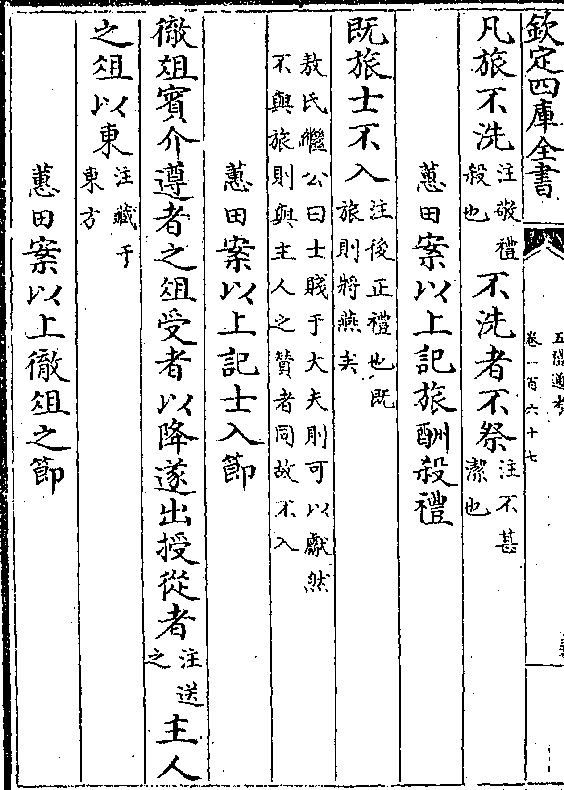 欽定四庫全書
五禮通考
卷一百六十七
凡旅不洗注敬禮殺也不洗者不祭注不甚潔也
蕙田案以上記旅酬殺禮
既旅士不入注後正禮也既旅則將燕矣
敖氏繼公曰士賤于大夫則可以獻然
不與旅則與主人之贊者同故不入
蕙田案以上記士入節
徹俎賓介遵者之俎受者以降遂出授從者注送之主人
之俎以東注藏于東方
蕙田案以上徹俎之節